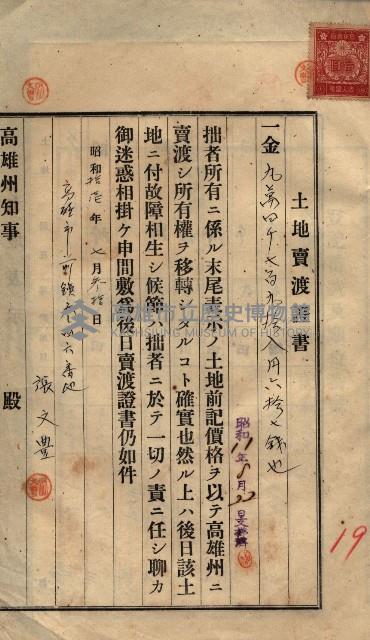 土地賣渡書
一金 九萬四千七百九拾八円六拾七錢也
拙者所有ニ係ル末尾表示ノ土地前記價格ヲ以テ高雄州ニ
賣渡シ所有權ヲ移轉シタルコト確實也然ル上ハ後日該土
地ニ付故障相生シ候節ハ拙者ニ於テ一切ノ責ニ任シ聊カ
御迷惑相掛ケ申間敷爲後日賣渡證書仍如件
昭和拾壱年七月参拾日
高雄市前鎮四六番地
張文豊
高雄州知事 殿
昭和11年8月22
19
高雄市立歷史博物館
KAOHSIUNG MUSEUM OF HISTORY